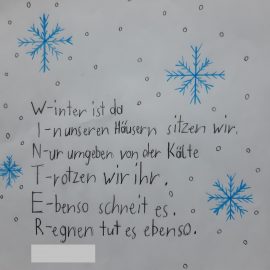 W-inter ist da
I-n unseren Häusern sitzen wir.
N-ur umgeben von der Kälte
T-rotzen wir ihr.
E-benso schneit es.
R-egnen tut es ebenso.